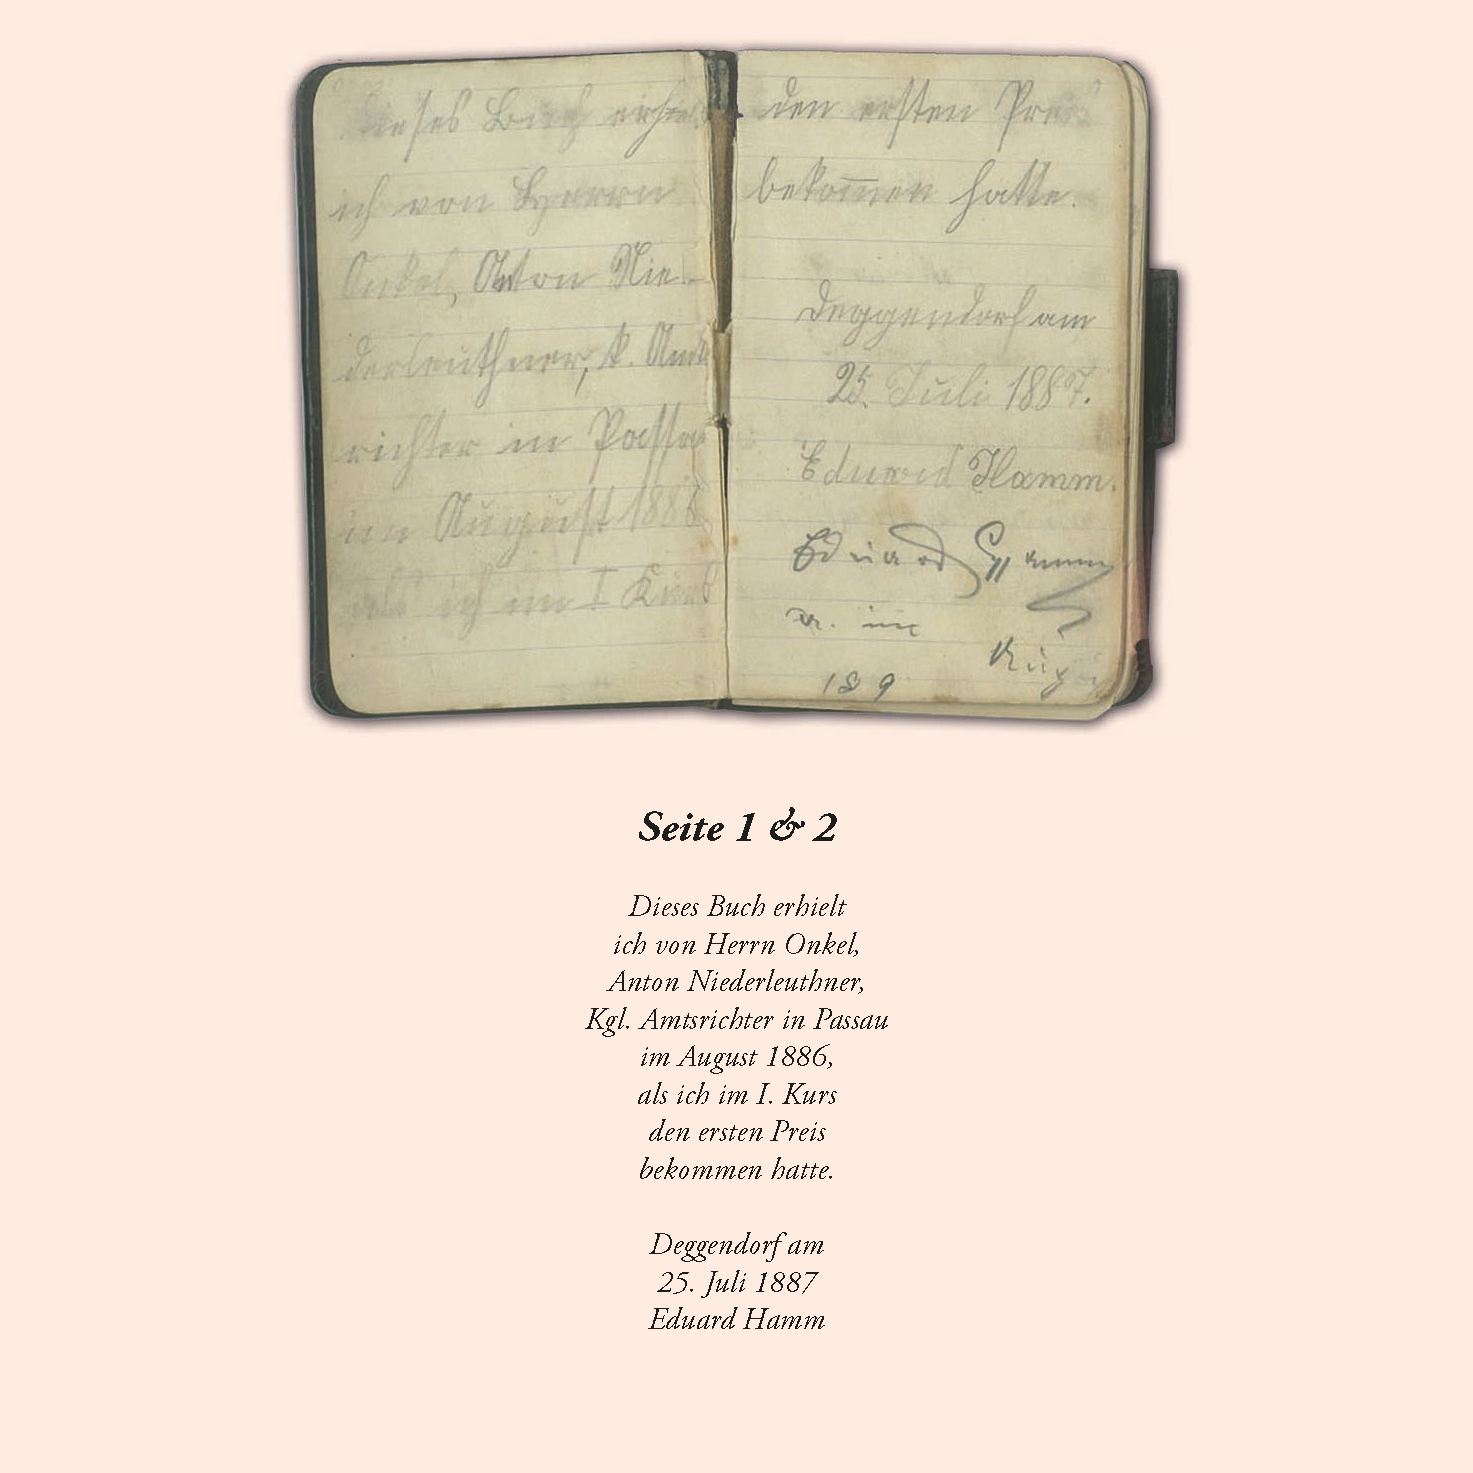 Dieses Buch erhie
ich von Herrn
Onkel, Anton Nie-
derleuthner, k. Amts
richter in Passa
im August 1886
als ich im I Kurs
den ersten Preis
bekom̅en hatte.
Deggendorf am
25. Juli 1887.
Eduard Hamm.
Eduard Hamm
189
Seite 1 & 2
Dieses Buch erhielt
ich von Herrn Onkel,
Anton Niederleuthner,
Kgl. Amtsrichter in Passau
im August 1886,
als ich im I. Kurs
den ersten Preis
bekommen hatte.
Deggendorf am
25. Juli 1887
Eduard Hamm